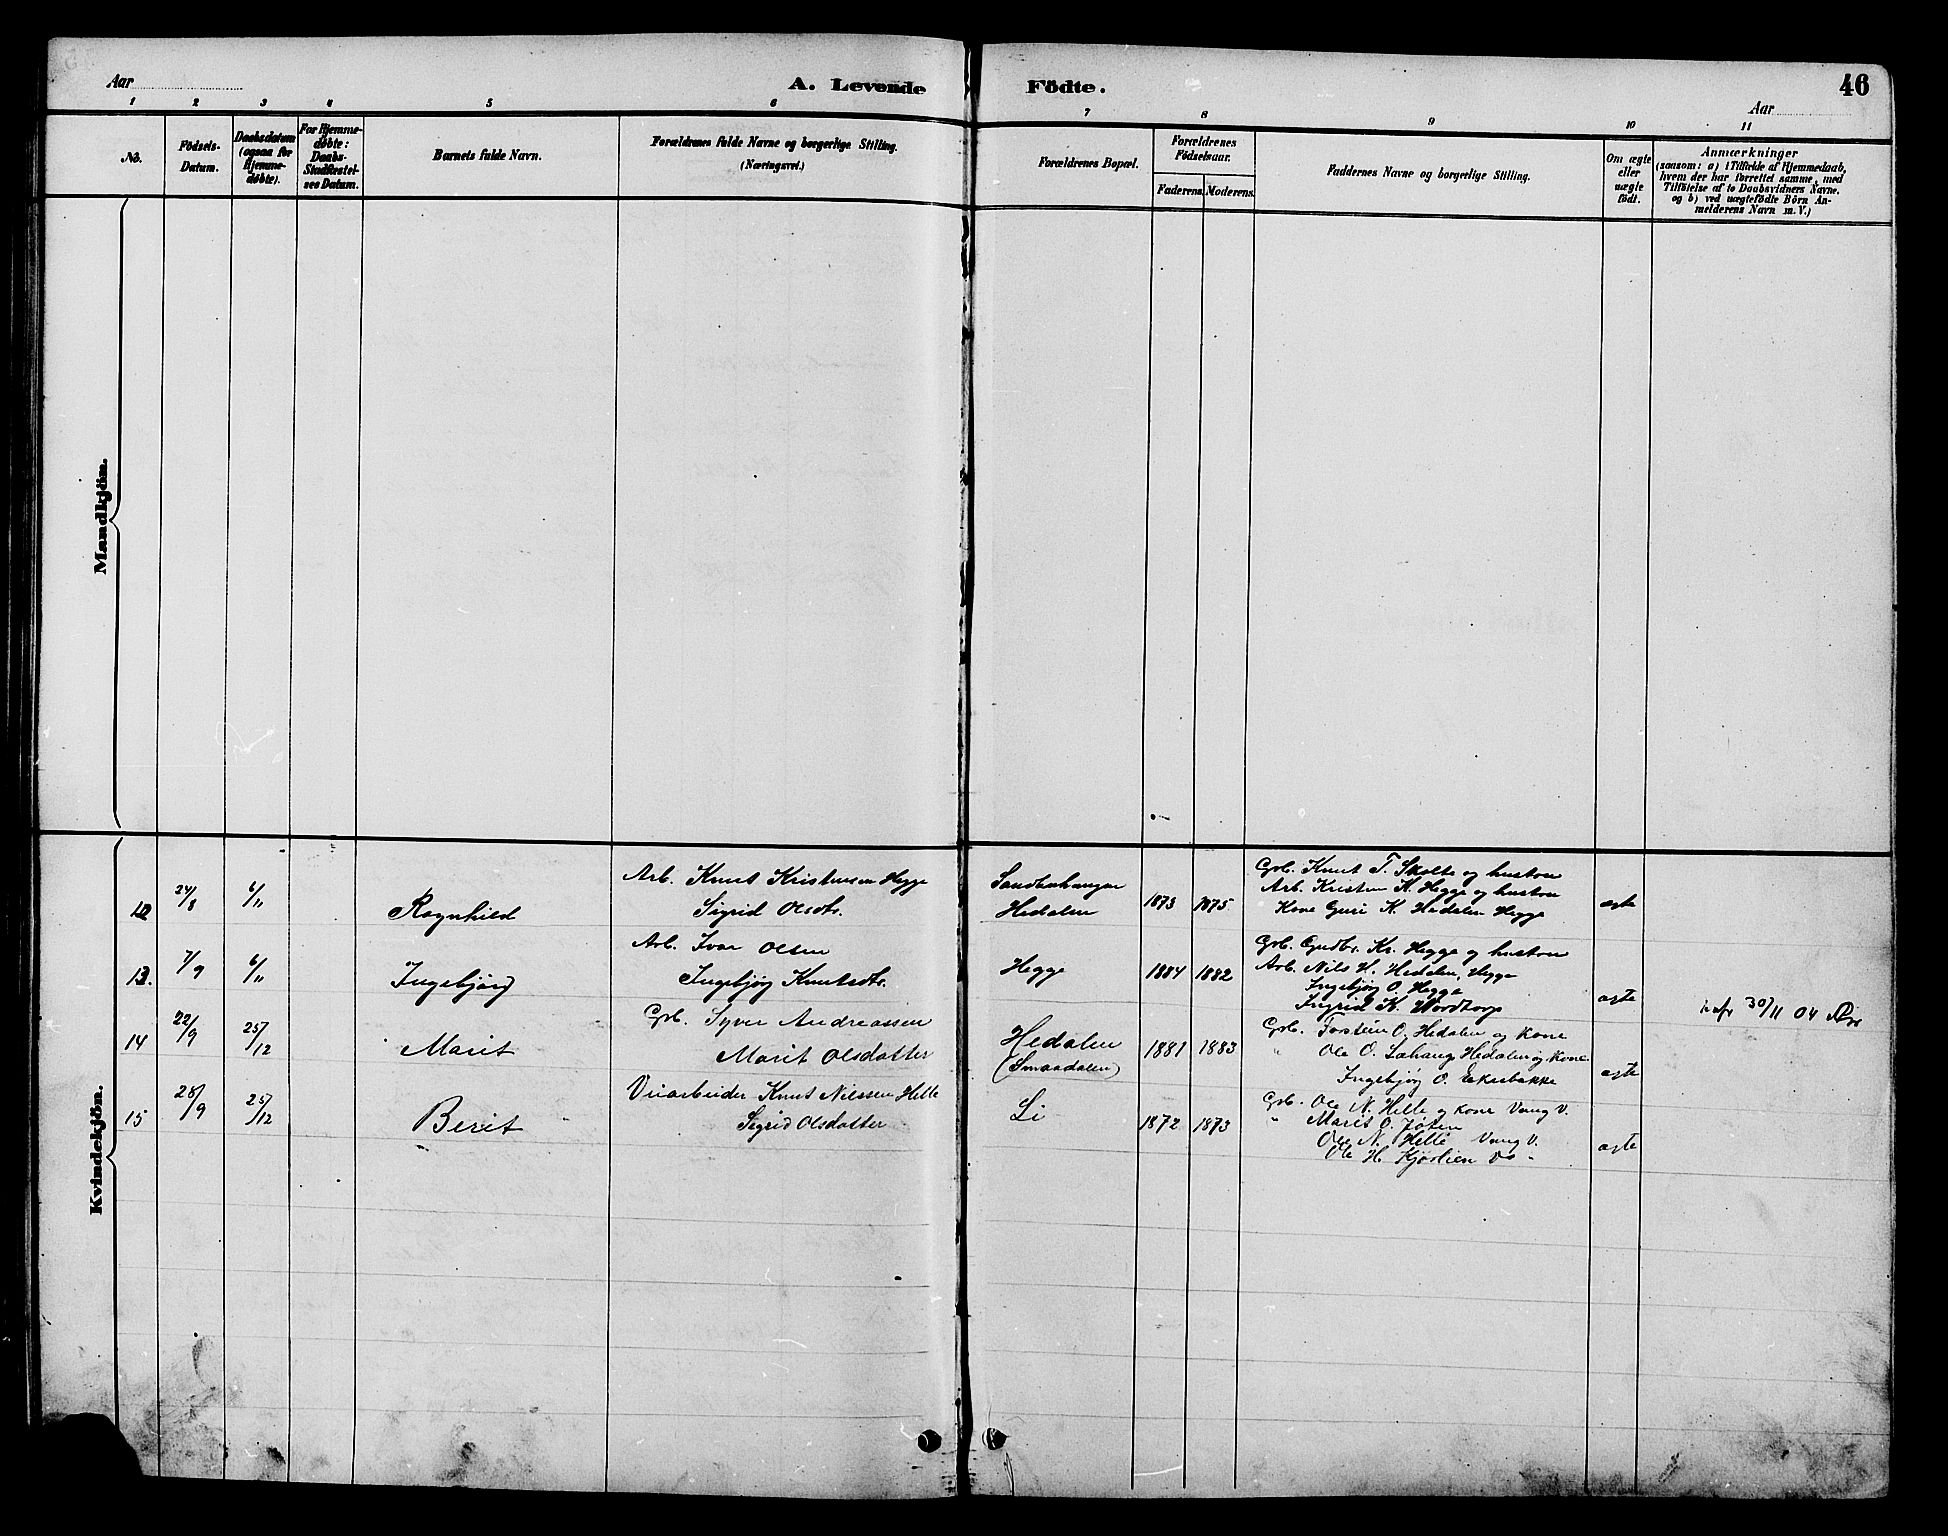 Aar
A. Levende Födte.
46
Aar
1 2 3 4 5 6 7 8 9 10 11
No.
Födsels-Datum.
Daabsdatum (ogsaa for Hjemme-døbte).
For Hjemme-døbte: Daabs-Stadfæstel-ses Datum.
Barnets fulde Navn.
Forældrenes fulde Navne og borgerlige Stilling.
(Næringsvei.)
Forældrenes Bopæl.
Forældrenes Födselsaar.
Faderens. Moderens.
Faddernes Navne og borgerlige Stilling.
Om ægte eller uægte födt.
Anmærkninger
(saasom: a) i Tilfælde af Hjemmedaab,
hvem der har forrettet samme, med
Tilföielse af to Daabsvidners Navne.
og b) ved uægtefödte Börn An-
melderens Navn m. V.)
Mandkjön.
Kvindekjön.
12 24/8 6/11 Ragnhild
Arb. Knut Kristensen Hegge
Sigrid Olsdtr.
Hedalen
1873 1875
Grb. Knut T. Skolte og hustru
Arb. Kristen K. Hegge og hustru
Kone Guri K. Hedalen Hegge
ægte
13. 7/9 6/11 Ingebjørg
Arb. Ivar Olsen
Ingebjøg Knutsdtr.
Hegge
1884 1882
Grb. Gudbr. Kr. Hegge og hustru
Arb. Nils H. Hedalen, Hegge
Ingebjøg O. Hegge
Ingrid K. Nordtorp
ægte
30/11 04
14 22/9 25/12 Marit
Grb. Syver Andreassen
Marit Olsdatter
Hedalen
(Smaadalen)
1881 1883
Grb. Torstein O. Hedalen og Kone
" Ole O. Hedalen og Kone
Ingebjøg O. Eksebakke
ægte
15 28/9 25/12 Berit
Veiarbeider Knut Nilssen Helle
Sigrid Olsdatter
Li
1872 1873
Grb. Ole N. Helle og Kone Vang V.
" Marit O. Jøten
Ole N. Helle Vang V.
Ole H. Kjørlien Do "
ægte